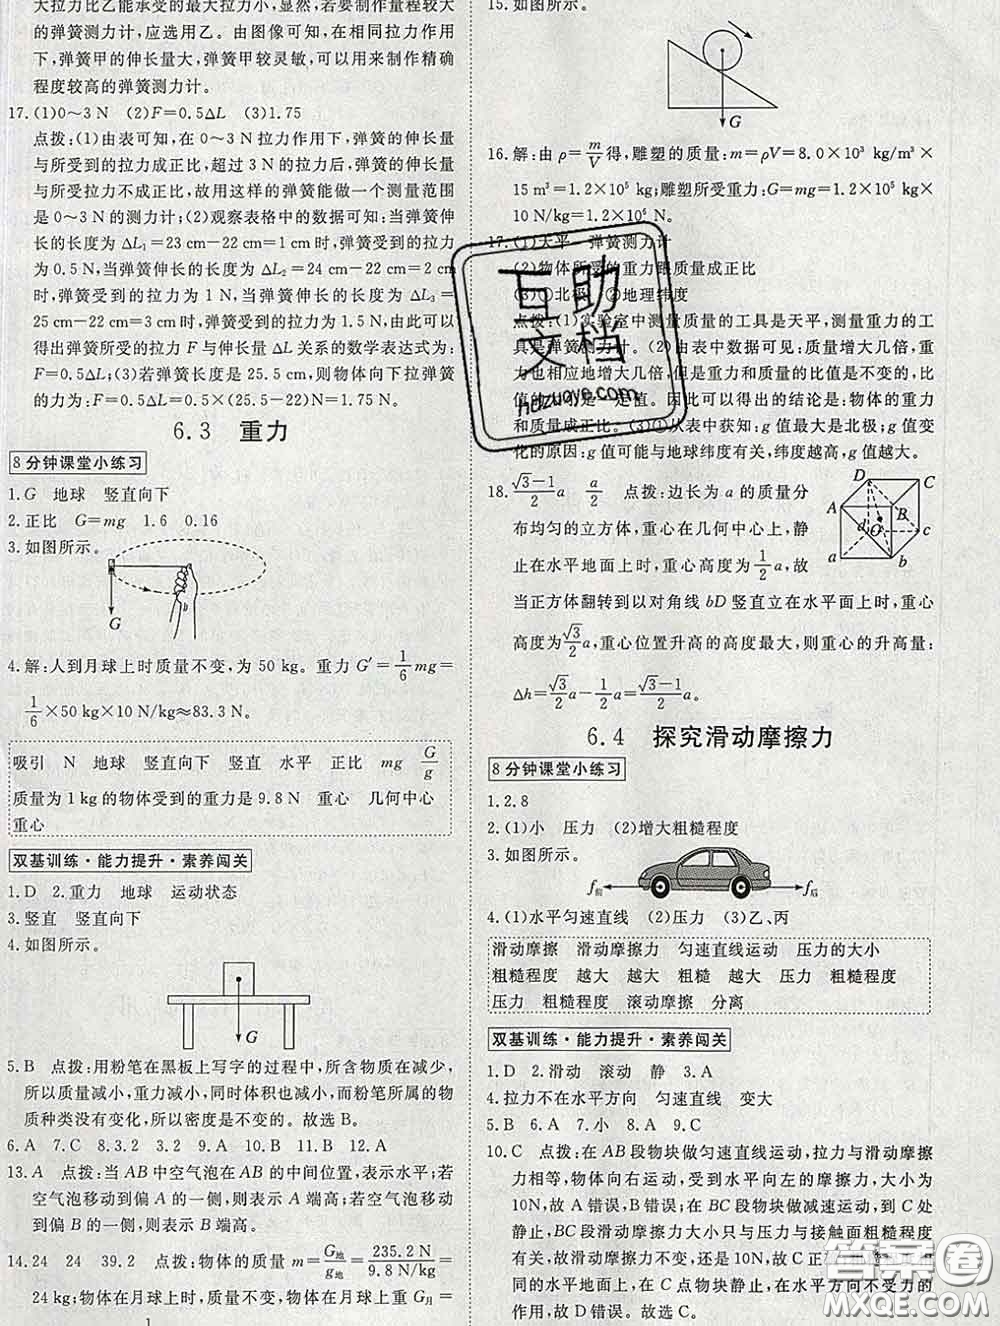 大拉力比乙能承受的最大拉力小，显然，若要制作量程较大
的弹簧测力计，应选用乙。由图像可知，在相同拉力作用
下，弹簧甲的伸长量大，弹簧甲较灵敏，可以用来制作精确
程度较高的弹簧测力计。
17.(1)0～3 N (2)F=0.5ΔL (3)1.75
点拨：(1)由表可知，在0～3 N拉力作用下，弹簧的伸长量
与所受到的拉力成正比，超过3 N的拉力后，弹簧的伸长量
与所受拉力不成正比，故用这样的弹簧能做一个测量范围
是0～3 N的测力计；(2)观察表格中的数据可知：当弹簧伸
长的长度为ΔL₁=23 cm-22 cm=1 cm时，弹簧受到的拉力
为0.5 N，当弹簧伸长的长度为ΔL₂=24 cm-22 cm=2 cm
时，弹簧受到的拉力为1 N，当弹簧伸长的长度为ΔL₃=
25 cm-22 cm=3 cm时，弹簧受到的拉力为1.5 N，由此可以
得出弹簧所受的拉力F与伸长量ΔL关系的数学表达式为：
F=0.5ΔL；(3)若弹簧长度是25.5 cm，则物体向下拉弹簧
的力为：F=0.5ΔL=0.5×(25.5-22)N=1.75 N。
6.3 重力
8分钟课堂小练习
1.G 地球 竖直向下
2.正比 G=mg 1.6 0.16
3.如图所示。
G
4.解：人到月球上时质量不变，为50 kg。重力G′=1/6mg=
1/6×50 kg×10 N/kg≈83.3 N。
吸引 N 地球 竖直向下 竖直 水平 正比 mg G/g
质量为1 kg的物体受到的重力是9.8 N 重心 几何中心
重心
双基训练·能力提升·素养闯关
1.D 2.重力 地球 运动状态
3.竖直 竖直向下
4.如图所示。
G
5.B 点拨：用粉笔在黑板上写字的过程中，所含物质在减少，
所以质量减小，重力减小，同时体积也减小，而粉笔所属的物
质种类没有变化，所以密度是不变的。故选B。
6.A 7.C 8.3.2 3.2 9.C 10.B 11.B 12.A
13.A 点拨：当AB中空气泡在AB的中间位置，表示水平；若
空气泡移动到偏A的一侧，则表示A端高；若空气泡移动
到偏B的一侧，则表示B端高。
14.24 24 39.2 点拨：物体的质量m=G地/g地=235.2 N/9.8 N/kg=
24 kg；物体在月球上时，质量不变，物体在月球上重G月=
1
15.如图所示。
G
16.解：由ρ=m/V得，雕塑的质量：m=ρV=8.0×10³ kg/m³×
15 m³=1.2×10⁵ kg；雕塑所受重力：G=mg=1.2×10⁵ kg×
10 N/kg=1.2×10⁶ N。
17.(1)天平 弹簧测力计
(2)物体所受的重力跟质量成正比
(3)①北极 ②地理纬度
点拨：(1)实验室中测量质量的工具是天平，测量重力的工
具是弹簧测力计。(2)由表中数据可见：质量增大几倍，
重力也相应地增大几倍，但是重力和质量的比值是不变的，
比值的大小是一定值。因此可以得出的结论是：物体的重力
和质量成正比。(3)①从表中获知：g值最大的是北极；g值变
化的原因：g值可能与地球纬度有关，纬度越高，g值越大。
18.(√3-1)/2a a/2 点拨：边长为a的质量分
布均匀的立方体，重心在几何中心上，静
止在水平地面上时，重心高度为1/2a，故
当正方体翻转到以对角线bD竖直立在水平面上时，重心
高度为√3/2a，重心位置升高的高度最大，则重心的升高量：
Δh=√3/2a-1/2a=(√3-1)/2a。
D C
A B
d O c
a b
6.4 探究滑动摩擦力
8分钟课堂小练习
1.2.8
2.(1)小 压力 (2)增大粗糙程度
3.如图所示。
f前 f后
4.(1)水平匀速直线 (2)压力 (3)乙、丙
滑动摩擦 滑动摩擦力 匀速直线运动 压力的大小
粗糙程度 越大 越大 粗糙 越大 压力 粗糙程度
压力 粗糙程度 滚动摩擦 分离
双基训练·能力提升·素养闯关
1.D 2.滑动 滚动 静 3.A
4.拉力不在水平方向 匀速直线 变大
5.B 6.A 7.小 8.A 9.C
10.C 点拨：在AB段物块做匀速直线运动，拉力与滑动摩擦
力相等，物体向右运动，受到水平向左的摩擦力，大小为
10N，故A错误，B错误；在BC段物块做减速运动，到C处
静止，BC段滑动摩擦力大小只与压力与接触面粗糙程度
有关，故滑动摩擦力不变，还是10N，故C正
同的水平面上，在C点物块静止，在水平方向不
的作用，故D错误。故选C。
互助
文档
hdzuoye.com
答案卷
MXQE.COM